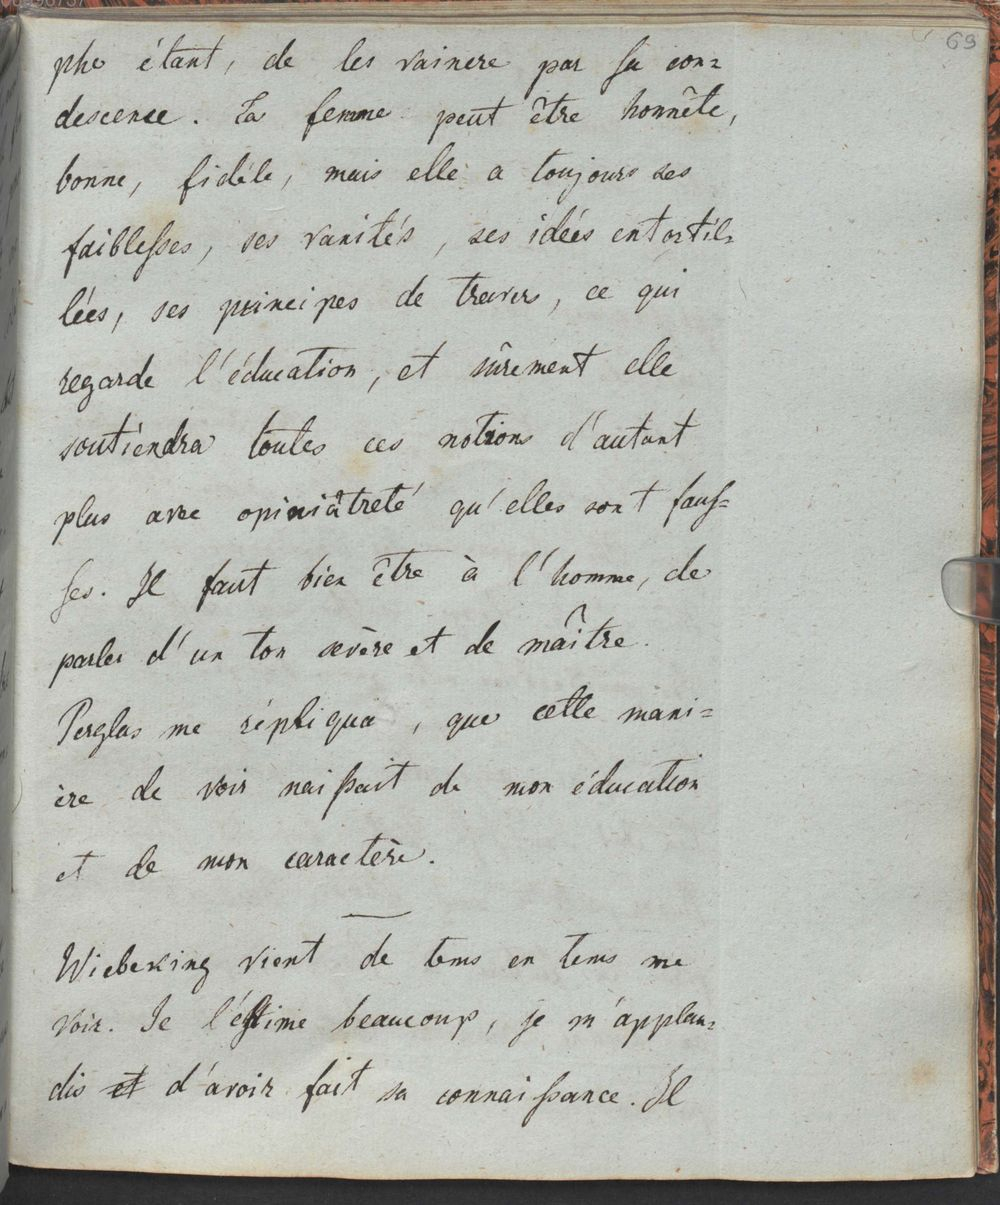 69
phe étant, de les vaincre par sa con=
descence. La femme peut être honnête,
bonne, fidéle, mais elle a toujours ses
faiblesses, ses vanités, ses idées entortil=
lées, ses principes de travers, ce qui
regarde l'éducation, et sûrement elle
soutiendra toutes ces notions d'autant
plus avec opiniâtreté qu'elles sont faus=
ses. Il faut bien être à l'homme, de
parler d'un ton sevère et de maître.
Perglas me répliqua, que cette mani=
ère de voir naissait de mon éducation
et de mon caractère.
Wiebeking vient de tems en tems me
voir. Je l'éstime beaucoup, je m'applau=
dis et d'avoir fait sa connaissance. Il